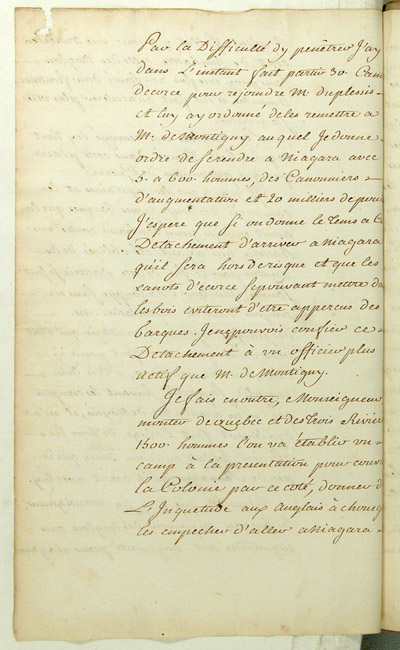 Par la Difficulté dy penétrer J'ay
dans L'instant fait partir 30. Can
decorce pour rejoindre M. duplessis
et luy ay ordonné de les remettre a
M. de Montigny auquel Je donne
ordre de se rendre a Niagara avec
5. a 600. hommes, des Canonniers
d'augmentation et 20 milliers de pou
J'espere que si on donne le tems a C
Detachement d'arriver a Niagara
qu'il sera hors de risque et que les
canots d'ecorce se pouvant mettre da
les bois eviteront d'etre apperçus des
barques. Je ne pouvois confier ce
Detachement à un officier plus
actif que M. de Montigny.
Je fais en outre, Monseigneur
monter de quebec et des trois Rivier
1500. hommes l'on va établir un
camp à la presentation pour couv
la Colonie par ce coté, donner d
L'Inquetude aux anglais à choueg
les empecher d'aller a Niagara